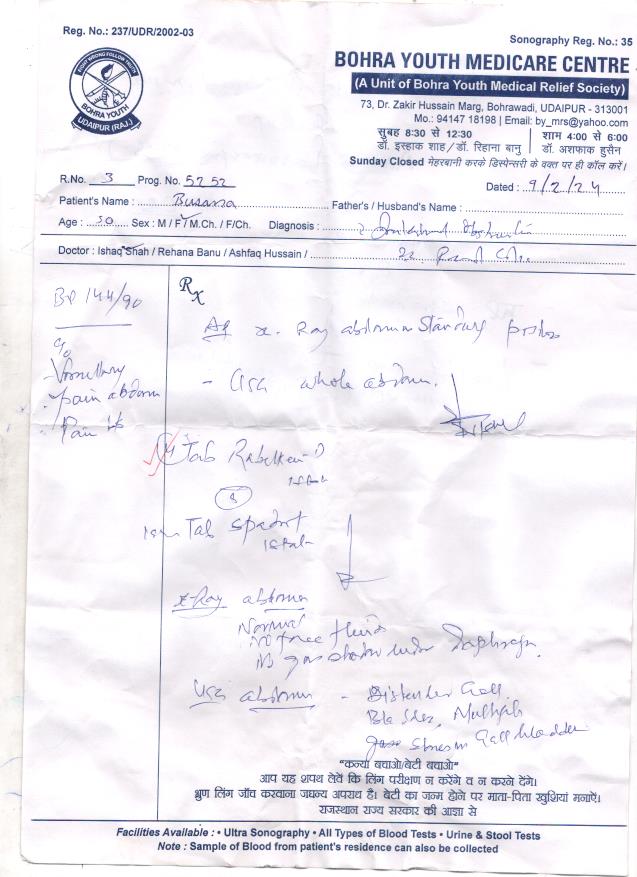 Reg. No.: 237/UDR/2002-03
Sonography Reg. No.: 35
FIGHT WRONG FOLLOW TRUTH
BOHRA YOUTH
UDAIPUR (RAJ.)
BOHRA YOUTH MEDICARE CENTRE
(A Unit of Bohra Youth Medical Relief Society)
73, Dr. Zakir Hussain Marg, Bohrawadi, UDAIPUR - 313001
Mo.: 94147 18198 | Email: by_mrs@yahoo.com
सुबह 8:30 से 12:30
डॉ. इस्हाक शाह / डॉ. रिहाना बानु
शाम 4:00 से 6:00
डॉ. अशफाक हुसैन
Sunday Closed मेहरबानी करके डिस्पेन्सरी के वक्त पर ही कॉल करें।
R.No. 3 Prog. No. 5252
Dated : 9/2/24
Patient's Name : Father's / Husband's Name :
Age : 50 Sex : M / F / M.Ch. / F/Ch. Diagnosis :
Doctor : Ishaq Shah / Rehana Banu / Ashfaq Hussain /
BP 144/90
Rx
X. Ray abdomen Standing
c/o
- Vomiting
- pain abdomen
- Pain
- USG whole abdomen.
Tab
8
Tab
X-Ray abdomen
Normal
No free fluid
No gas shadow under diaphragm.
USG abdomen - Distended Gall
Bladder, Multiple
stones in Gall bladder
"कन्या बचाओ/बेटी बचाओ"
आप यह शपथ लेवें कि लिंग परीक्षण न करेंगे व न करने देंगे।
भ्रूण लिंग जाँच करवाना जघन्य अपराध है। बेटी का जन्म होने पर माता-पिता खुशियां मनाऐं।
राजस्थान राज्य सरकार की आज्ञा से
Facilities Available : • Ultra Sonography • All Types of Blood Tests • Urine & Stool Tests
Note : Sample of Blood from patient's residence can also be collected